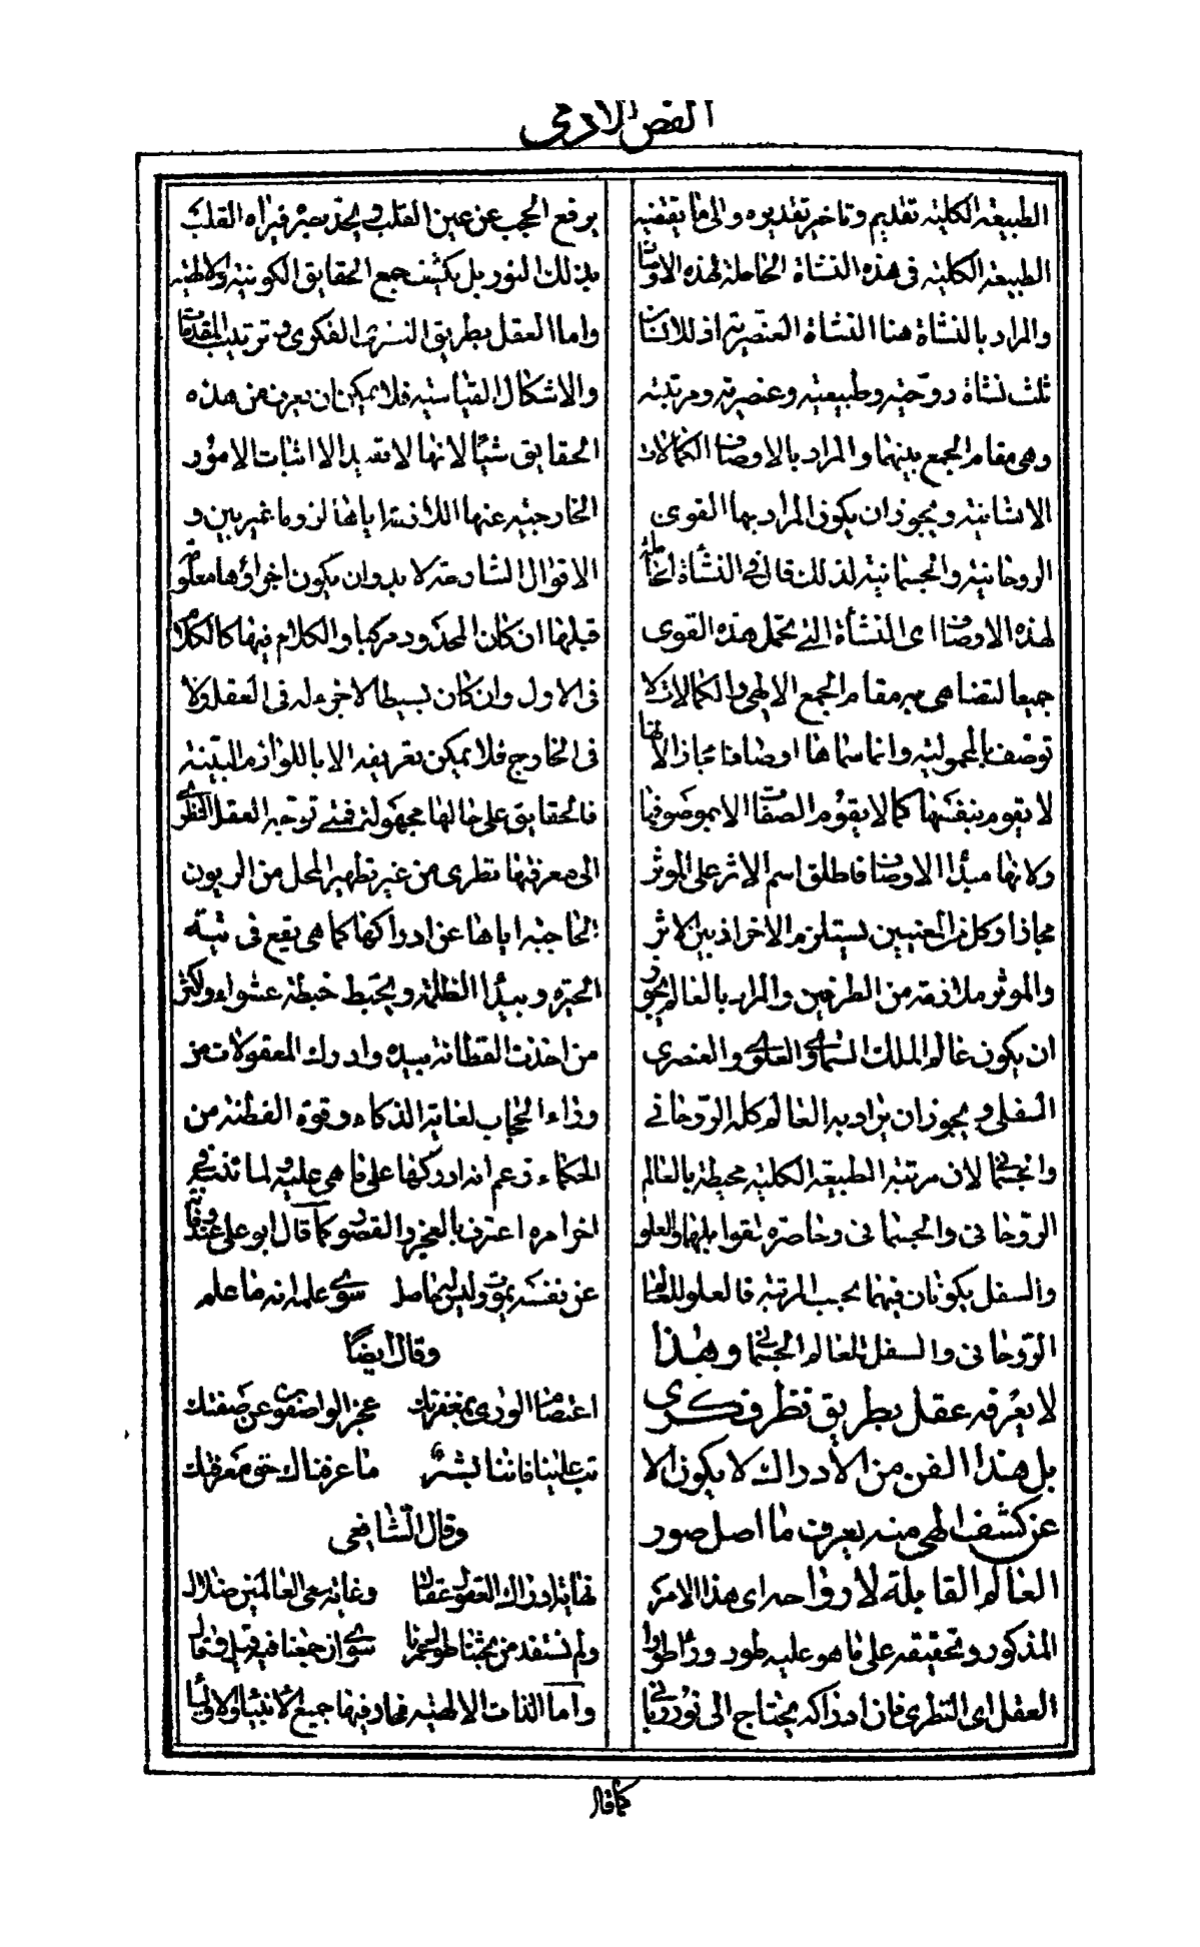 الفص الادمى
الطبيعة الكلية تقديم وتاخير تقديره والى ما يقتضيه
الطبيعة الكلية فى هذه النشاة الحاملة لهذه الاوصاف
والمراد بالنشاة هنا النشاة العنصرية اذ للانسان
ثلث نشاة روحية وطبيعية وعنصرية ومرتبته
وهى مقام الجمع بينهما والمراد بالاوصاف الكمالات
الانسانية ويجوز ان يكون المراد بها القوى
الروحانية والجسمانية لذلك قال فى النشأة الحاملة
لهذه الاوصاف اى النشأة التى تحمل هذه القوى
جميعا لتضاهى به مقام الجمع الالهى والكمالات لا
توصف بالمحمولية وانما سماها اوصافا مجازا لانها
لا يقوم بنفسها كما لا يقوم الصفات الا بموصوفها
ولانها مبدأ الاوصاف فاطلق اسم الاثر على الموثر
مجازا وكل من المعنيين يستلزم الاخر اذ بين الاثر
والموثر ملازمة من الطرفين والمراد بالعالم يجوز
ان يكون عالم الملك السماوى العلوى والعنصرى
السفلى ويجوز ان يراد به العالم كله الروحانى
والجسمانى لان مرتبة الطبيعة الكلية محيطة بالعالم
الروحانى والجسمانى وحاصرة لقوابلهما والعلو
والسفل يكونان فيهما بحسب المرتبة فالعلو للعالم
الروحانى والسفل للعالم الجسمانى وهذا
لا يعرفه عقل بطريق نظر فكرى
بل هذا الفن من الادراك لا يكون الا
عن كشف الهى منه يعرف ما اصل صور
العالم القابلة لارواحه اى هذا الامر
المذكور وتحقيقه على ما هو عليه طور وراء اطوار
العقل اى النظرى فان ادراكه يحتاج الى نور ربانى
يرفع الحجب عن عين القلب ويحد بصره فيراه القلب
بذلك النور بل يكشف جميع الحقايق الكونية والالهية
واما العقل بطريق النظر الفكرى وترتيب المقدمات
والاشكال القياسية فلا يمكن ان يعرف من هذه
الحقايق شيئا لانها لا تفيد الا اثبات الامور
الخارجية عنها اللازمة اياها لزوما غير بين و
الاقوال الشارحة لا بد وان يكون اجزاؤها معلومة
قبلها ان كان المحدود مركبا والكلام فيها كالكلام
فى الاول وان كان بسيطا لا جزء له فى العقل ولا
فى الخارج فلا يمكن تعريفه الا باللوازم البينة
فالحقايق على حالها مجهولة فمتى توجه العقل النظرى
الى معرفتها من غير تطهير المحل من الريون
الحاجبة اياها عن ادراكها كما هى يقع فى تيه
الحيرة وبيدا الظلمة ويخبط خبطة عشواء واكثر
من اخذت الفطانة بيده وادرك المعقولات من
وراء الحجاب لغاية الذكاء وقوة الفطنة من
الحكماء زعم انه ادركها على ما هى عليه ولما تنبه فى
اخر امره اعترف بالعجز والقصور كما قال ابو على عند وفاته
عن نفسه يموت وليس له حاصل سوى علمه انه ما علم
وقال ايضًا
اعتصام الورى بمغفرتك عجز الواصفون عن صفتك
تب علينا فاننا بشر ما عرفناك حق معرفتك
وقال الشافعى
نهاية ادراك العقول عقال وغاية سعى العالمين ضلال
ولم نستفد من بحثنا طول عمرنا سوى ان جمعنا فيه قيل وقال
واما الذات الالهية فحار فيها جميع الانبياء والاولياء
كما قال